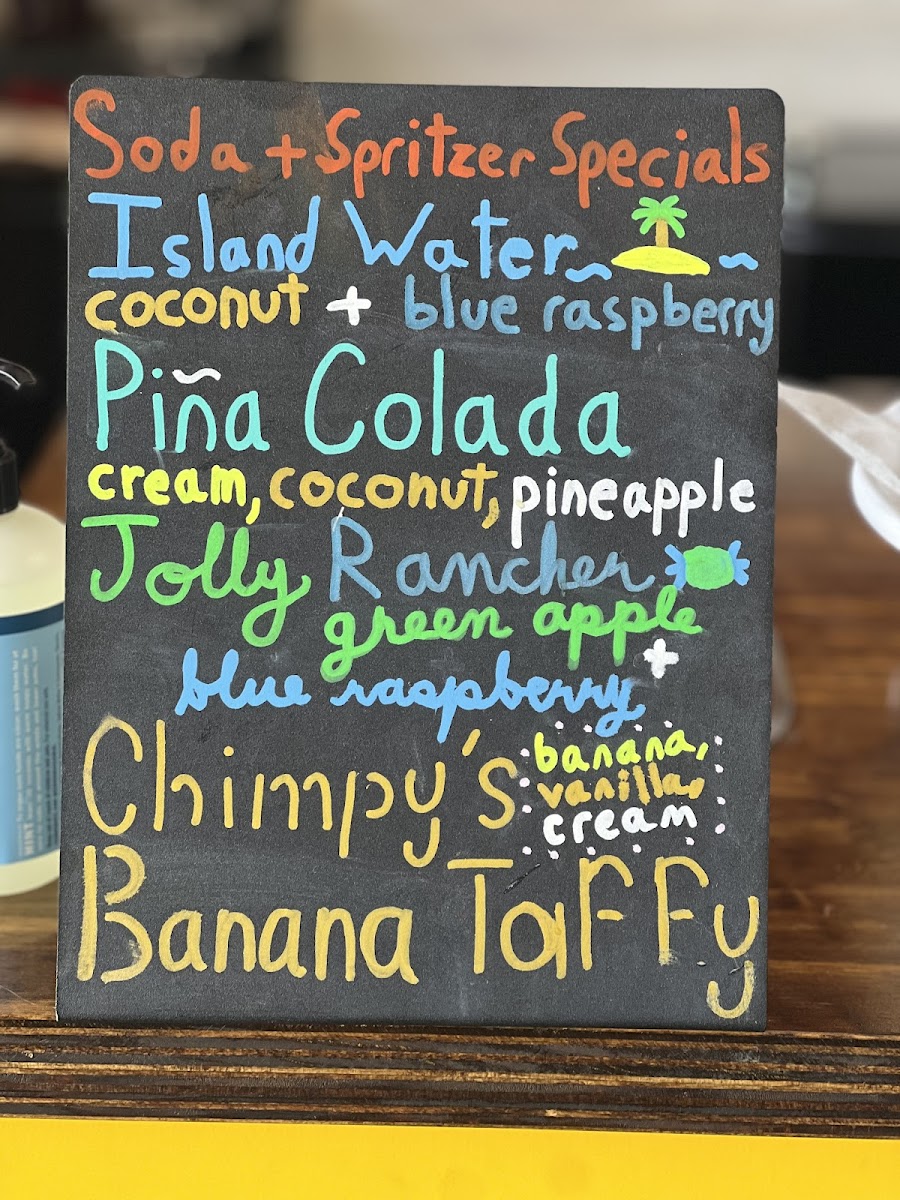 Soda + Spritzer Specials
Island Water
coconut + blue raspberry
Piña Colada
cream, coconut, pineapple
Jolly Rancher
green apple
+
blue raspberry
Chimpy's
banana,
vanilla,
cream
Banana Taffy